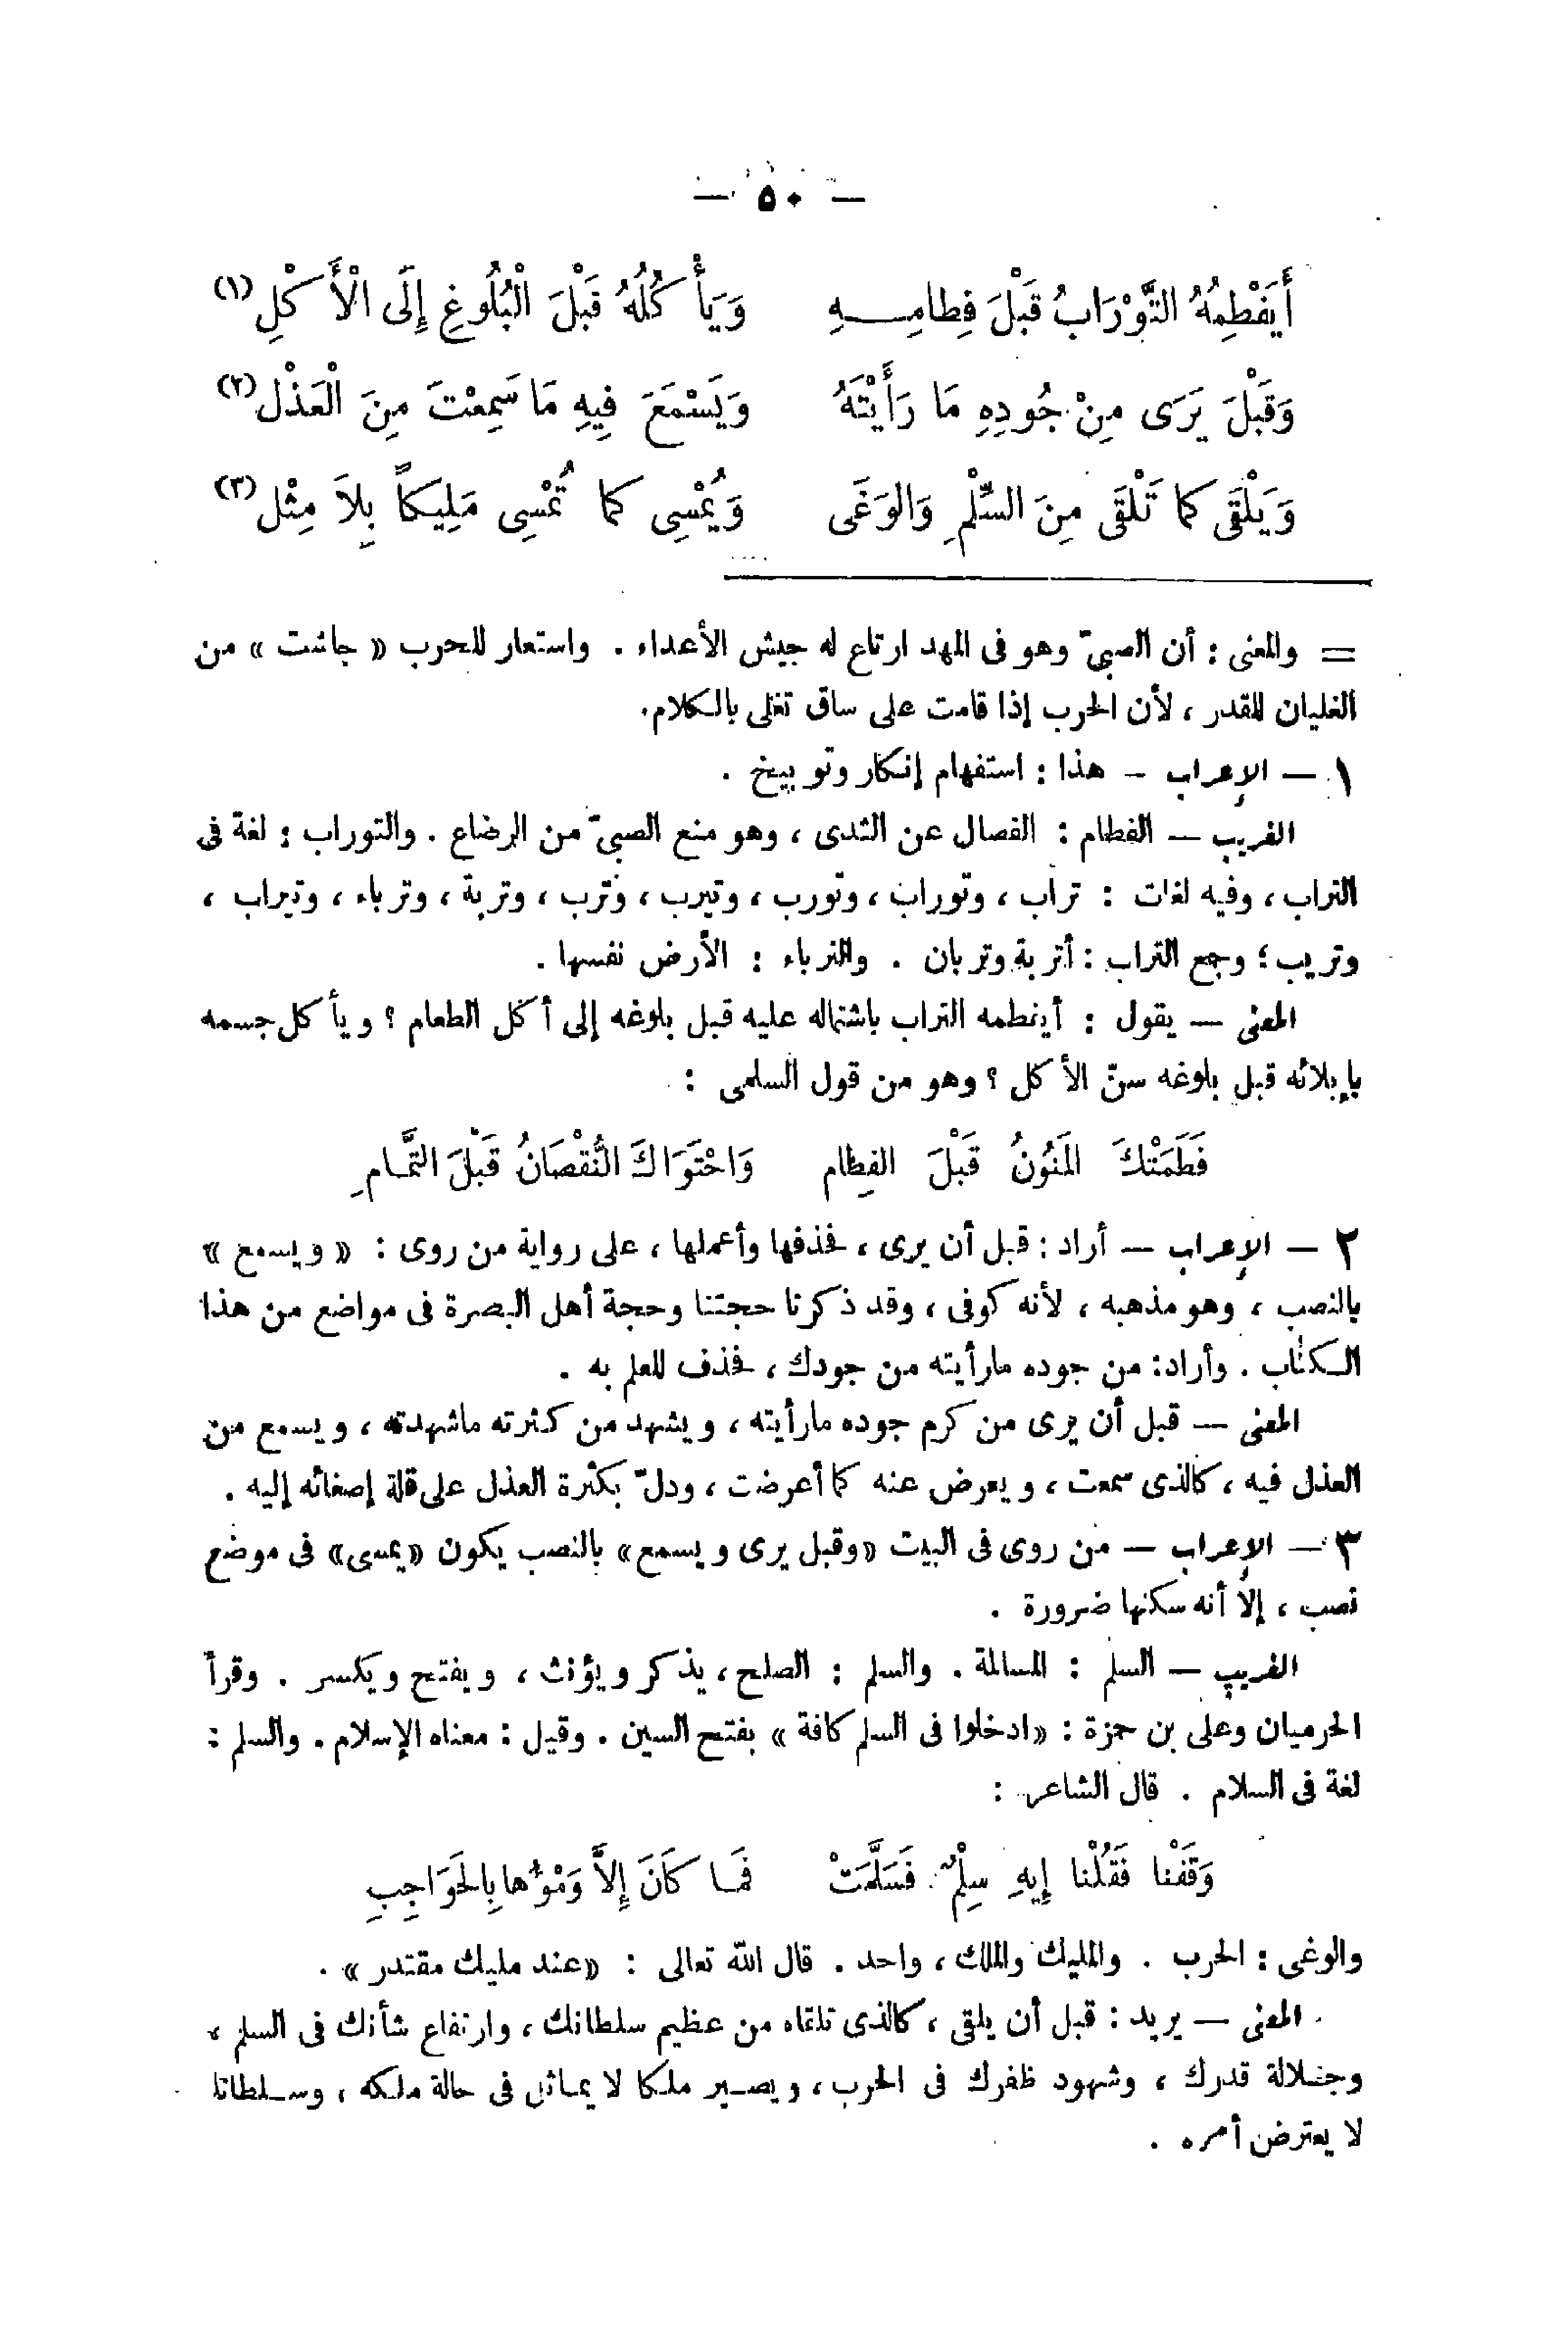 — ٥٠ —
أَيَفْطِمُهُ التَّوْرَابُ قَبْلَ فِطامِـــهِ وَيَأْكُلُهُ قَبْلَ الْبُلُوغِ إِلَى الْأَكْلِ (١)
وَقَبْلَ يَرَى مِنْ جُودِهِ مَا رَأَيْتَهُ وَيَسْمَعَ فِيهِ مَا سَمِعْتَ مِنَ الْعَذْلِ (٢)
وَيَلْقَى كما تَلْقَى مِنَ السِّلْمِ وَالوَغَى وَيُمْسِى كما تُمْسِى مَلِيكاً بِلاَ مِثْلِ (٣)
= والمعنى : أن الصبىّ وهو فى المهد ارتاع له جيش الأعداء . واستعار للحرب « جاشت » من
الغليان للقدر ، لأن الحرب إذا قامت على ساق تغلى بالكلام.
١ — الإعراب — هذا : استفهام إنكار وتوبيخ .
الغريب — الفطام : الفصال عن الثدى ، وهو منع الصبىّ من الرضاع . والتوراب : لغة فى
التراب ، وفيه لغات : تراب ، وتوراب ، وتورب ، وتيرب ، وترب ، وتربة ، وترباء ، وتيراب ،
وتريب ؛ وجمع التراب : أتربة وتربان . والترباء : الأرض نفسها .
المعنى — يقول : أيفطمه التراب باشتماله عليه قبل بلوغه إلى أكل الطعام ؟ ويأكل جسمه
بإبلائه قبل بلوغه سنّ الأكل ؟ وهو من قول السلمى :
فَطَمَتْكَ المَنُونُ قَبْلَ الفِطام وَاحْتَوَاكَ النُّقْصَانُ قَبْلَ التَّمَامِ
٢ — الإعراب — أراد : قبل أن يرى ، فحذفها وأعملها ، على رواية من روى : « ويسمع »
بالنصب ، وهو مذهبه ، لأنه كوفى ، وقد ذكرنا حجتنا وحجة أهل البصرة فى مواضع من هذا
الكتاب . وأراد: من جوده مارأيته من جودك ، فحذف للعلم به .
المعنى — قبل أن يرى من كرم جوده مارأيته ، ويشهد من كثرته ماشهدته ، ويسمع من
العذل فيه ، كالذى سمعت ، ويعرض عنه كما أعرضت ، ودلّ بكثرة العذل على قلة إصغائه إليه .
٣ — الإعراب — من روى فى البيت «وقبل يرى ويسمع» بالنصب يكون «يمسى» فى موضع
نصب ، إلا أنه سكنها ضرورة .
الغريب — السلم : المسالمة . والسلم : الصلح ، يذكر ويؤنث ، ويفتح ويكسر . وقرأ
الحرميان وعلى بن حمزة : «ادخلوا فى السلم كافة » بفتح السين . وقيل : معناه الإسلام . والسلم :
لغة فى السلام . قال الشاعر :
وَقَفْنا فَقُلْنا إِيهِ سِلْمٌ فَسَلَّمَتْ فَمَا كَانَ إِلاَّ وَمْؤُها بِالحَوَاجِبِ
والوغى : الحرب . والمليك والملك ، واحد . قال الله تعالى : «عند مليك مقتدر» .
المعنى — يريد : قبل أن يلقى ، كالذى تلقاه من عظيم سلطانك ، وارتفاع شأنك فى السلم ،
وجلالة قدرك ، وشهود ظفرك فى الحرب ، ويصير ملكا لا يماثل فى حالة ملكه ، وسلطانا
لا يعترض أمره .